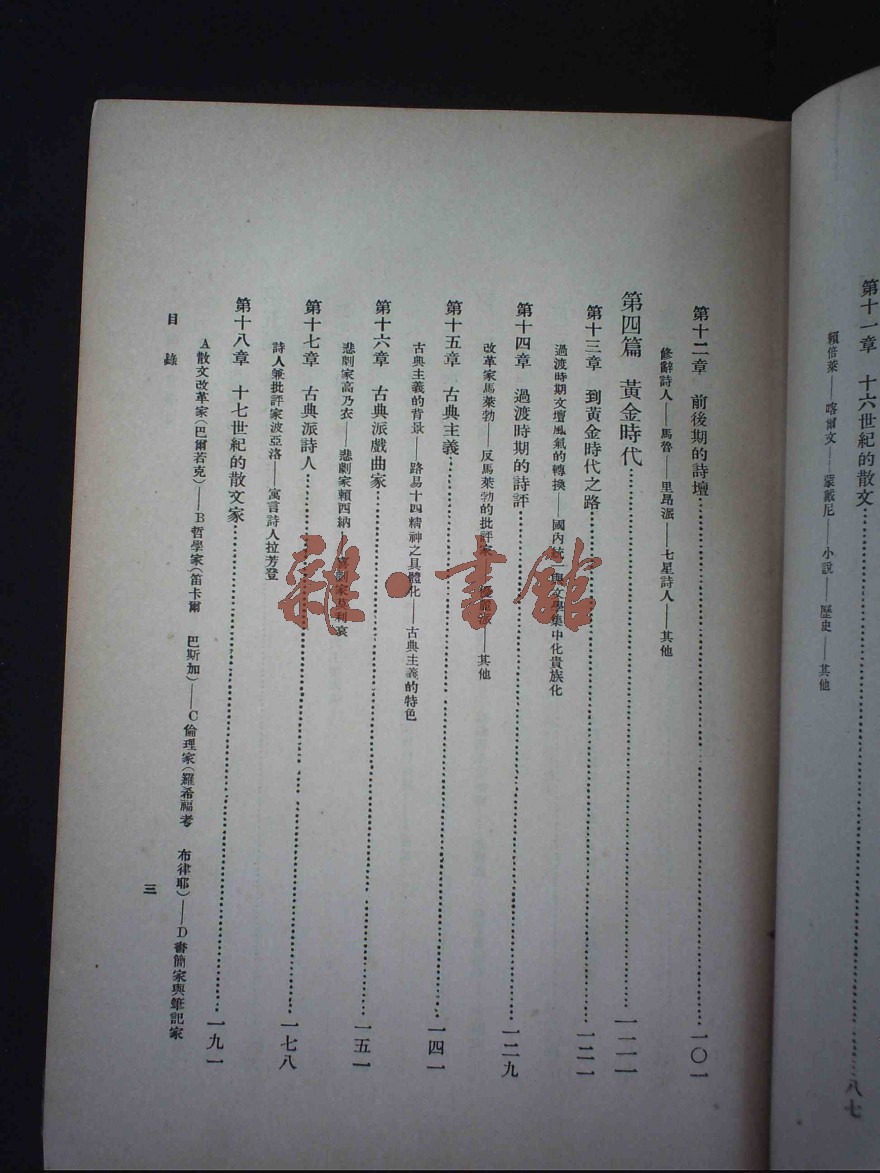 第十一章　十六世紀的散文……八七
賴倍萊——喀爾文——蒙戴尼——小說——歷史——其他
第十二章　前後期的詩壇……一〇一
修辭詩人——馬魯——里昂派——七星詩人——其他
第四篇　黃金時代……一二一
第十三章　到黃金時代之路……一二一
過渡時期文壇風氣的轉換——國內統一與文學集中化貴族化
第十四章　過渡時期的詩評……一二九
改革家馬萊勃——反馬萊勃的批評家————其他
第十五章　古典主義……一四一
古典主義的背景——路易十四精神之具體化——古典主義的特色
第十六章　古典派戲曲家……一五一
悲劇家高乃衣——悲劇家賴西納——喜劇家莫利哀
第十七章　古典派詩人……一七八
詩人兼批評家波亞洛——寓言詩人拉芳登
第十八章　十七世紀的散文家……一九一
A散文改革家（巴爾若克）——B哲學家（笛卡爾　巴斯加）——C倫理家（羅希福考　布律耶）——D書簡家與筆記家
目錄
三
雜·書館